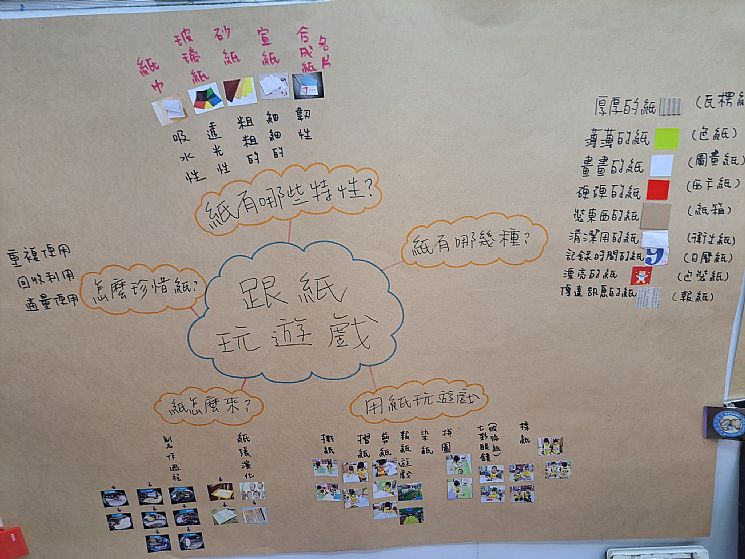 紙巾
玻璃紙
砂紙
宣紙
合成紙
名片
吸水性
透光性
粗粗的
細細的
韌性
紙有哪些特性?
紙有哪幾種?
厚厚的紙 (瓦楞紙
薄薄的紙 (色紙)
畫畫的紙 (圖畫紙)
硬硬的紙 (西卡紙)
裝東西的紙 (紙箱)
清潔用的紙 (衛生紙)
記錄時間的紙 9 (日曆紙)
漂亮的紙 (包裝紙)
傳達訊息的紙 (報紙)
怎麼珍惜紙?
重複使用
回收利用
適量使用
跟紙
玩遊戲
紙怎麼來?
製作過程
紙張演化
用紙玩遊戲
撕紙
摺紙
剪紙
報紙遊戲
染紙
拼圖
七彩眼鏡